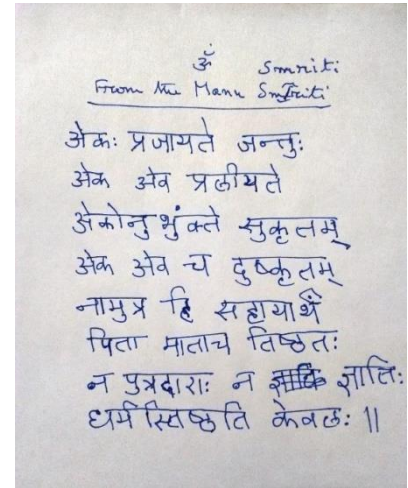 ॐ
Smriti
From the Manu Smriti
अेकः प्रजायते जन्तुः
अेक अेव प्रलीयते
अेकोनुभुंक्ते सुकृतम्
अेक अेव च दुष्कृतम्
नामुत्र हि सहायार्थं
पिता माताच तिष्ठतः
न पुत्रदाराः न ज्ञातिः
धर्मस्तिष्ठति केवलः ॥